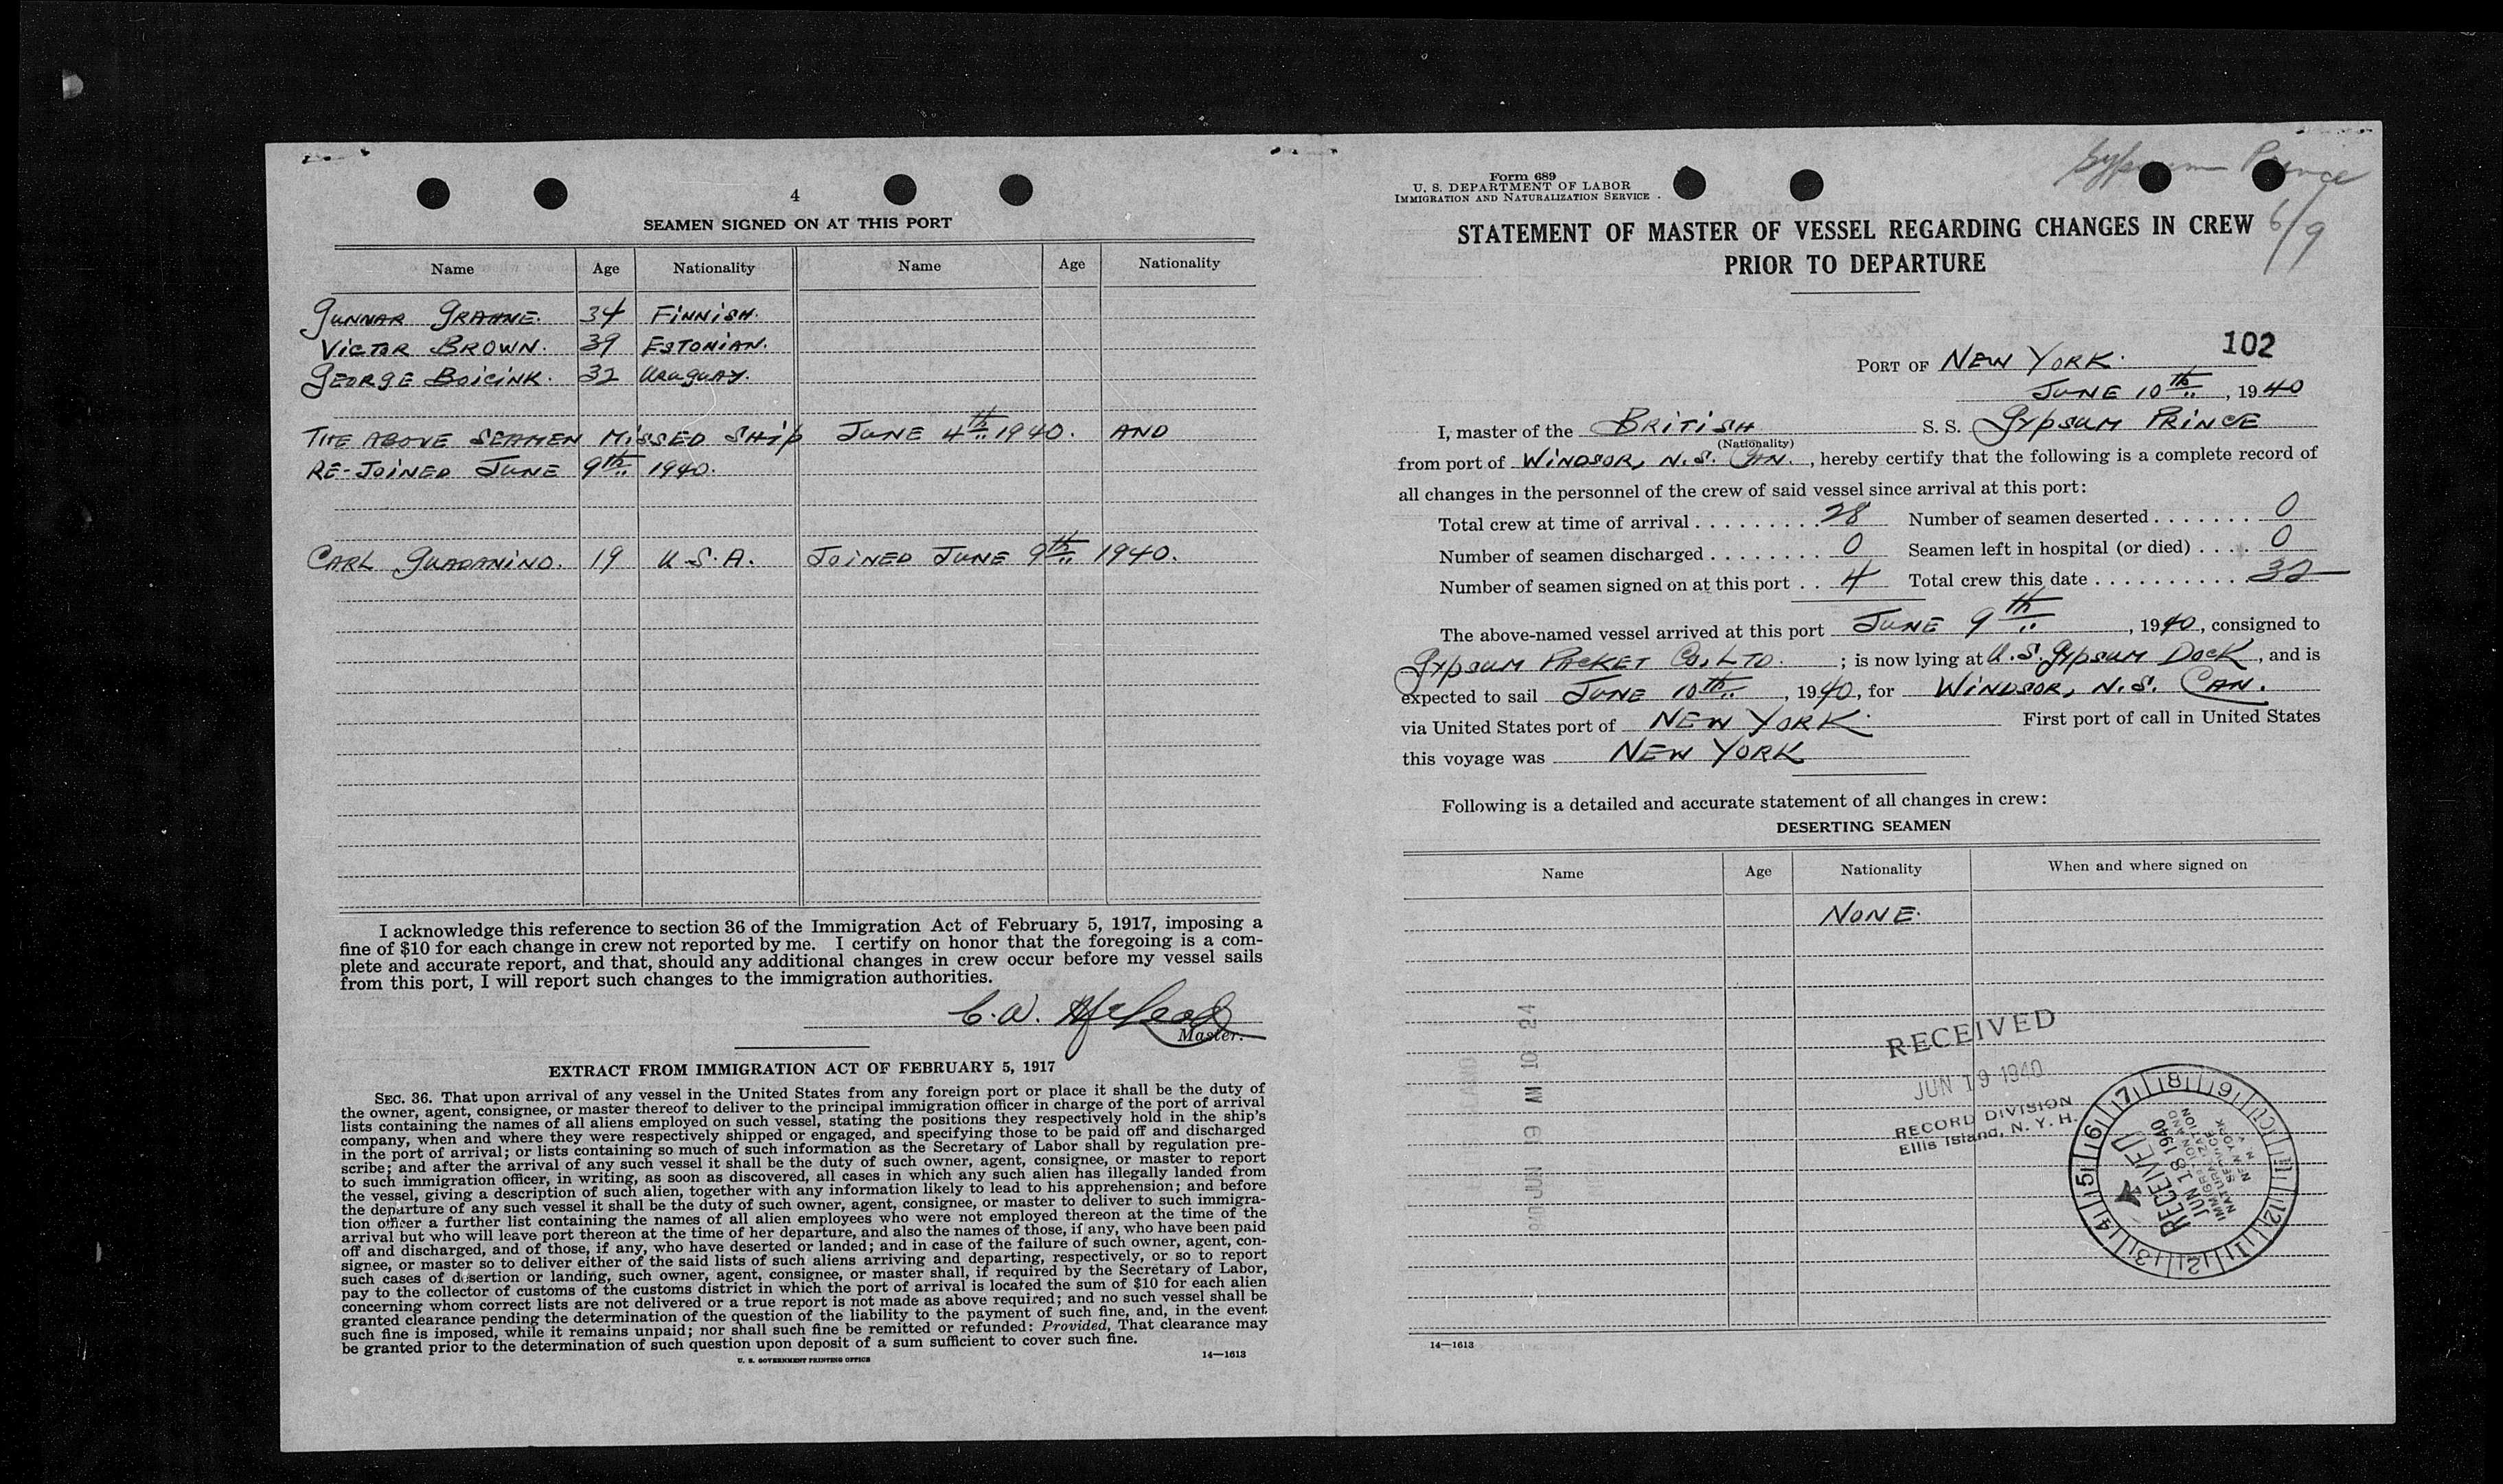 4
SEAMEN SIGNED ON AT THIS PORT
Name Age Nationality Name Age Nationality
GUNNAR GRAHNE. 34 FINNISH.
VICTOR BROWN. 39 ESTONIAN.
GEORGE BOICINK. 32 URUGUAY.
THE ABOVE SEAMEN MISSED SHIP JUNE 4th 1940. AND
RE-JOINED JUNE 9th 1940.
CARL GUADANINO. 19 U.S.A. JOINED JUNE 9th 1940.
I acknowledge this reference to section 36 of the Immigration Act of February 5, 1917, imposing a
fine of $10 for each change in crew not reported by me. I certify on honor that the foregoing is a com-
plete and accurate report, and that, should any additional changes in crew occur before my vessel sails
from this port, I will report such changes to the immigration authorities.
C. W. McLeod
Master.
EXTRACT FROM IMMIGRATION ACT OF FEBRUARY 5, 1917
SEC. 36. That upon arrival of any vessel in the United States from any foreign port or place it shall be the duty of
the owner, agent, consignee, or master thereof to deliver to the principal immigration officer in charge of the port of arrival
lists containing the names of all aliens employed on such vessel, stating the positions they respectively hold in the ship's
company, when and where they were respectively shipped or engaged, and specifying those to be paid off and discharged
in the port of arrival; or lists containing so much of such information as the Secretary of Labor shall by regulation pre-
scribe; and after the arrival of any such vessel it shall be the duty of such owner, agent, consignee, or master to report
to such immigration officer, in writing, as soon as discovered, all cases in which any such alien has illegally landed from
the vessel, giving a description of such alien, together with any information likely to lead to his apprehension; and before
the departure of any such vessel it shall be the duty of such owner, agent, consignee, or master to deliver to such immigra-
tion officer a further list containing the names of all alien employees who were not employed thereon at the time of the
arrival but who will leave port thereon at the time of her departure, and also the names of those, if any, who have been paid
off and discharged, and of those, if any, who have deserted or landed; and in case of the failure of such owner, agent, con-
signee, or master so to deliver either of the said lists of such aliens arriving and departing, respectively, or so to report
such cases of desertion or landing, such owner, agent, consignee, or master shall, if required by the Secretary of Labor,
pay to the collector of customs of the customs district in which the port of arrival is located the sum of $10 for each alien
concerning whom correct lists are not delivered or a true report is not made as above required; and no such vessel shall be
granted clearance pending the determination of the question of the liability to the payment of such fine, and, in the event
such fine is imposed, while it remains unpaid; nor shall such fine be remitted or refunded: Provided, That clearance may
be granted prior to the determination of such question upon deposit of a sum sufficient to cover such fine.
U. S. GOVERNMENT PRINTING OFFICE 14—1613
Form 689
U. S. DEPARTMENT OF LABOR
IMMIGRATION AND NATURALIZATION SERVICE
Gypsum Prince
6/9
STATEMENT OF MASTER OF VESSEL REGARDING CHANGES IN CREW
PRIOR TO DEPARTURE
102
PORT OF NEW YORK.
JUNE 10th, 1940
I, master of the BRITISH S. S. GYPSUM PRINCE
(Nationality)
from port of WINDSOR, N.S. CAN., hereby certify that the following is a complete record of
all changes in the personnel of the crew of said vessel since arrival at this port:
Total crew at time of arrival . . . . . . . . . 28 Number of seamen deserted . . . . . . . 0
Number of seamen discharged . . . . . . . . 0 Seamen left in hospital (or died) . . . . 0
Number of seamen signed on at this port . . 4 Total crew this date . . . . . . . . . . . 32
The above-named vessel arrived at this port JUNE 9th, 1940, consigned to
GYPSUM PACKET CO, LTD. ; is now lying at U.S. GYPSUM DOCK, and is
expected to sail JUNE 10th, 1940, for WINDSOR, N.S. CAN.
via United States port of NEW YORK. First port of call in United States
this voyage was NEW YORK
Following is a detailed and accurate statement of all changes in crew:
DESERTING SEAMEN
Name Age Nationality When and where signed on
NONE.
RECEIVED
JUN 19 1940
RECORD DIVISION
Ellis Island, N. Y. H.
1940 JUN 19 AM 10 24
RECEIVED
JUN 18 1940
IMMIGRATION AND
NATURALIZATION
SERVICE
NEW YORK
N. Y.
7 8 9 10 11 12 1 2 3 4 5 6
14—1613